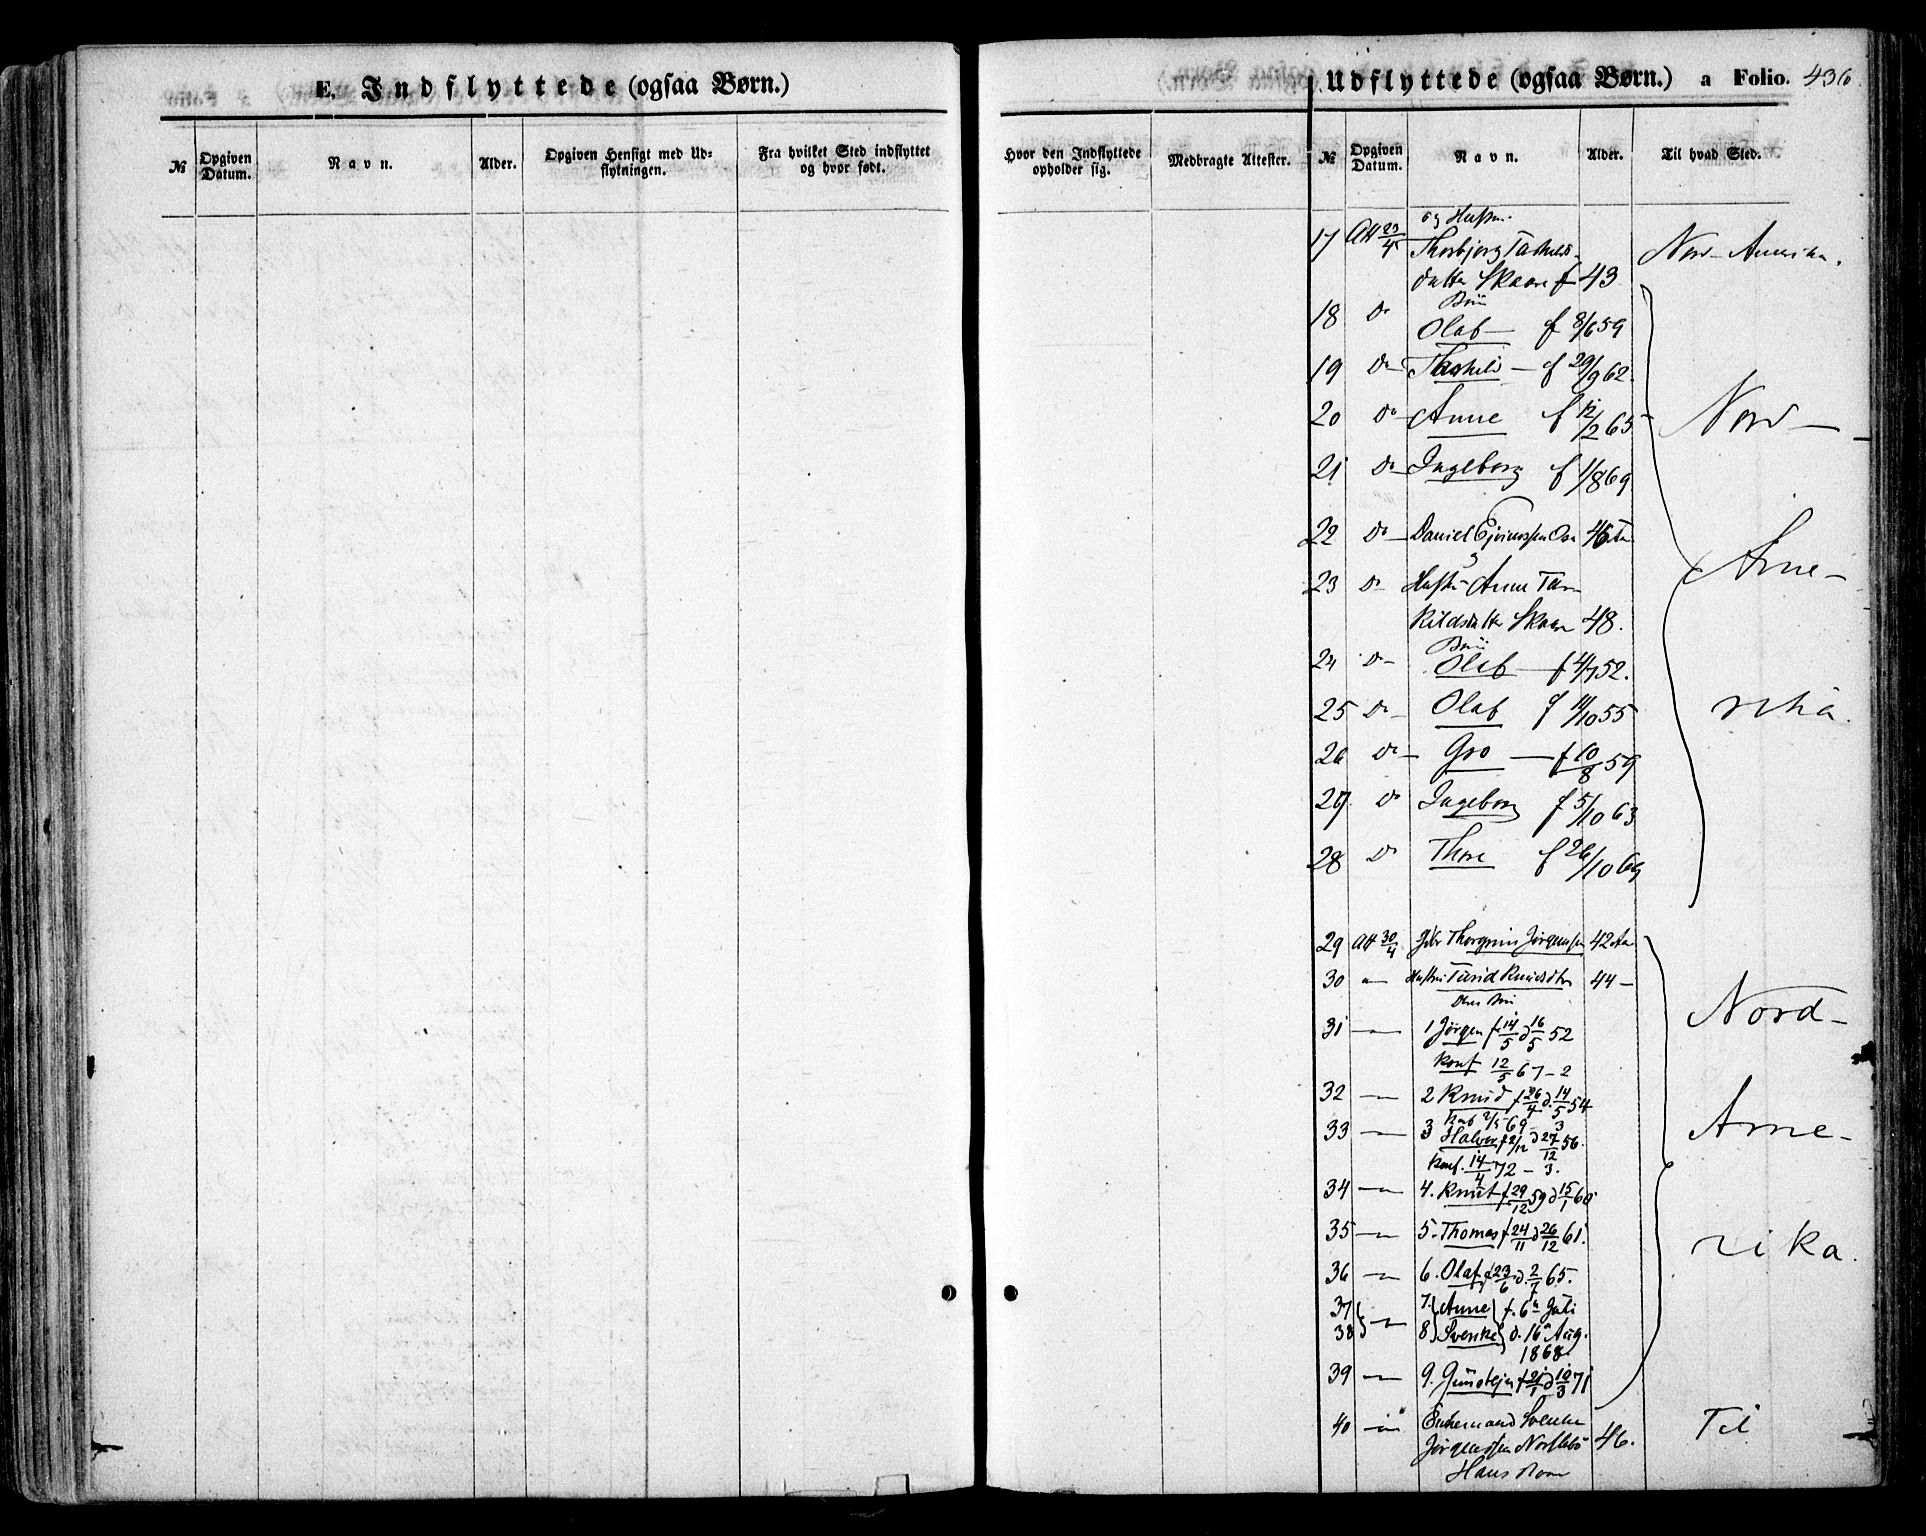 E. Indflyttede (ogsaa Børn.)
Udflyttede (ogsaa Børn.) a Folio. 436
№ Opgiven Datum. Navn. Alder. Opgiven Hensigt med Udflytningen. Fra hvilket Sted indflyttet og hvor født. Hvor den Indflyttede opholder sig. Medbragte Attester. № Opgiven Datum. Navn. Alder. Til hvad Sted.
og Hustru
17 Att 23/4 Thorbjørg Taskilds-
datter Skaare f 43 Nord-Amerika.
Børn
18 Do Olaf — f 8/6 59
19 Do — Taskild — f 29/9 62.
20 Do — Anne f 12/2 65 Nord-
21 Do — Ingeborg f 1/8 69
22 Do — Daniel 46 Aar
23 Do — Hustru Anne Tas- Ame-
kildsdatter Skaare 48.
Børn
24 Do — Olaf — f 4/7 52.
25 Do — Olaf f 11/10 55 rika.
26 Do — Gro — f 10/8 59
27 Do Ingeborg f 5/10 63
28 Do Thore f 26/10 69
29 Att 30/4 Thorgrim Jørgensen 42 Aar
30 — Hustru Turid Knudsdtr 44 — Nord-
deres Børn
31 — 1 Jørgen f 14/5 d 16/5 52
Konf 12/5 67 - 2
32 — 2 Knud f 26/4 d. 14/5 54
konf 2/5 69 - 3
33 — 3 Halvor f 2/12 d 27/12 56. Ame-
konf. 14/4 72 - 3.
34 — 4. Knut f 29/12 59 d 15/1 60
35 — 5. Thomas f 24/11 d 26/12 61. rika.
36 — 6. Olaf f 23/6 d. 2/7 65.
37 } — 7. } Anne } f. 6te Juli
38 } 8 } Svenke } d. 16de Aug.
1868
39 — 9. Gunstejn f 21/1 d 10/3 71
40 — Enkemand Svenke Til
Jørgenssen 46.
Hans